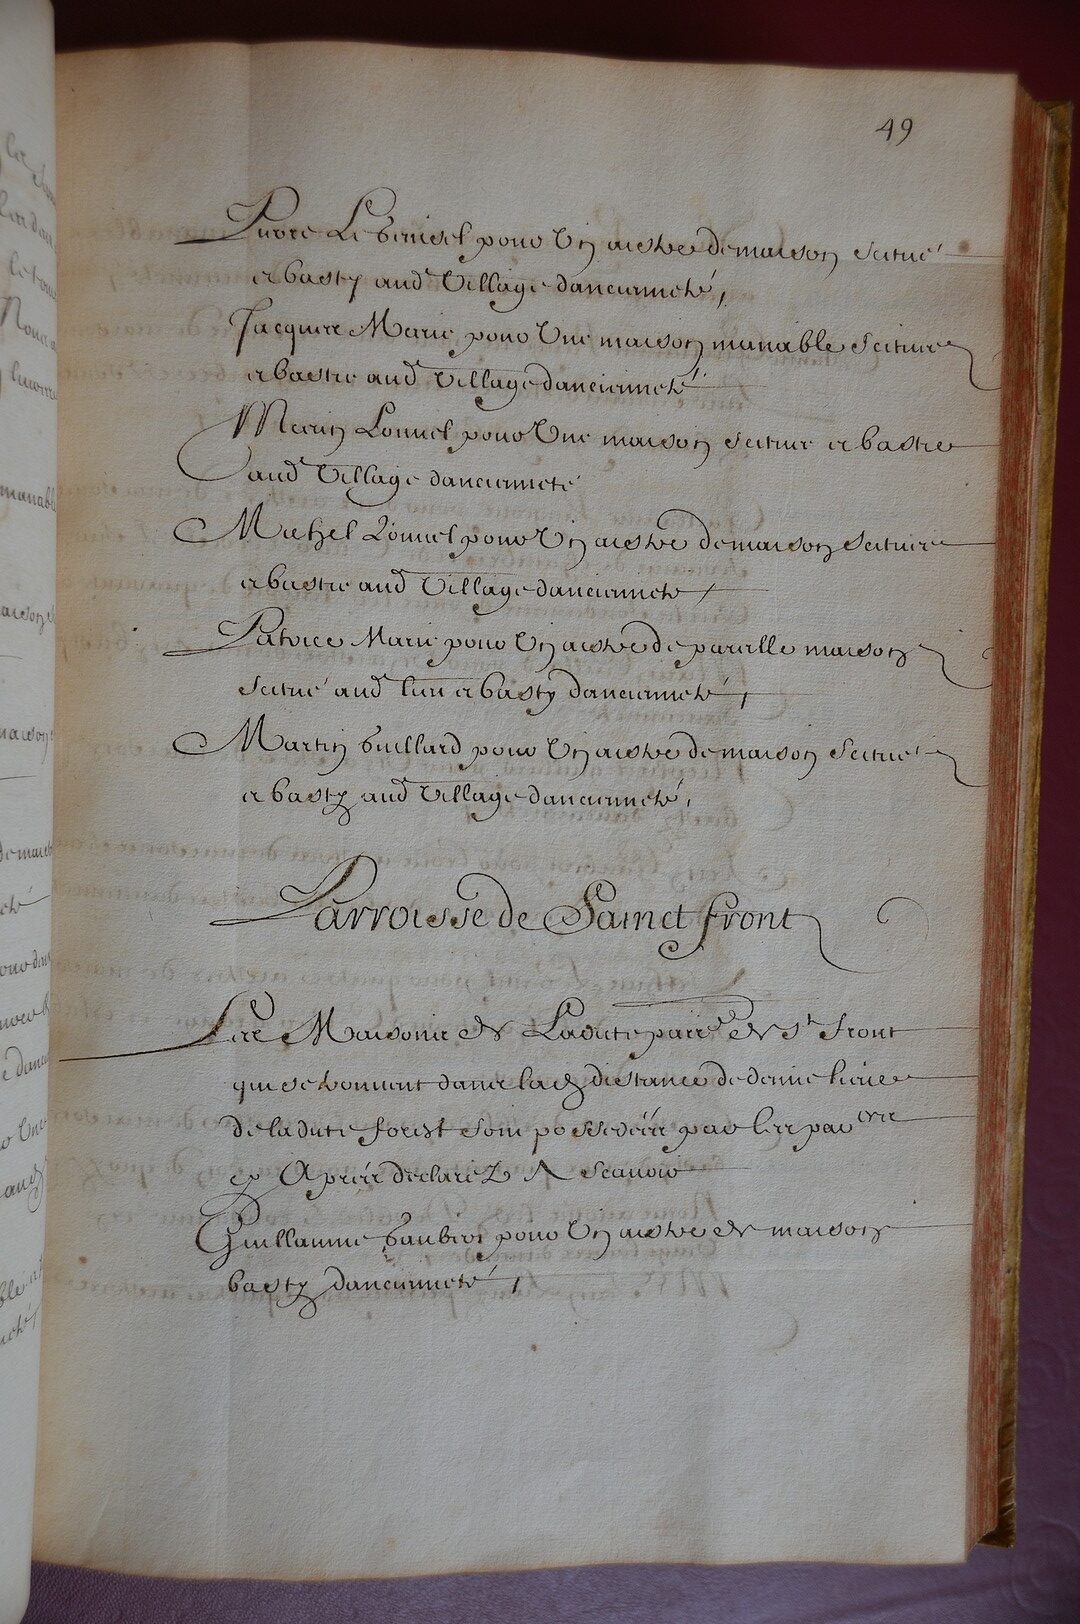 49
Pierre Le pour Un aistre de maison scitué
et basty aud. Village d'ancienneté,
Jacques Marie pour Une maison manable scituée
et bastie aud. Village d'ancienneté
Lonnel pour Une maison scituée et bastie
aud. Village d'ancienneté
Michel Lonnel pour Un aistre de maison scituée
et bastie aud. Village d'ancienneté
Patrice Marie pour Un aistre de pareille maison
scitué aud. lieu et basty d'ancienneté,
Martin Guillard pour Un aistre de maison scitué
et basty aud. Village d'ancienneté,
Parroisse de Sainct Front
Les Maisons de Ladite parr.e de St. Front
qui se trouvent dans lad. distance de demie lieüe
de ladite forest sont possedées par les par.ers
cy Apres declarez A Scavoir
Guillaume pour Un aistre de maison
basty d'ancienneté,